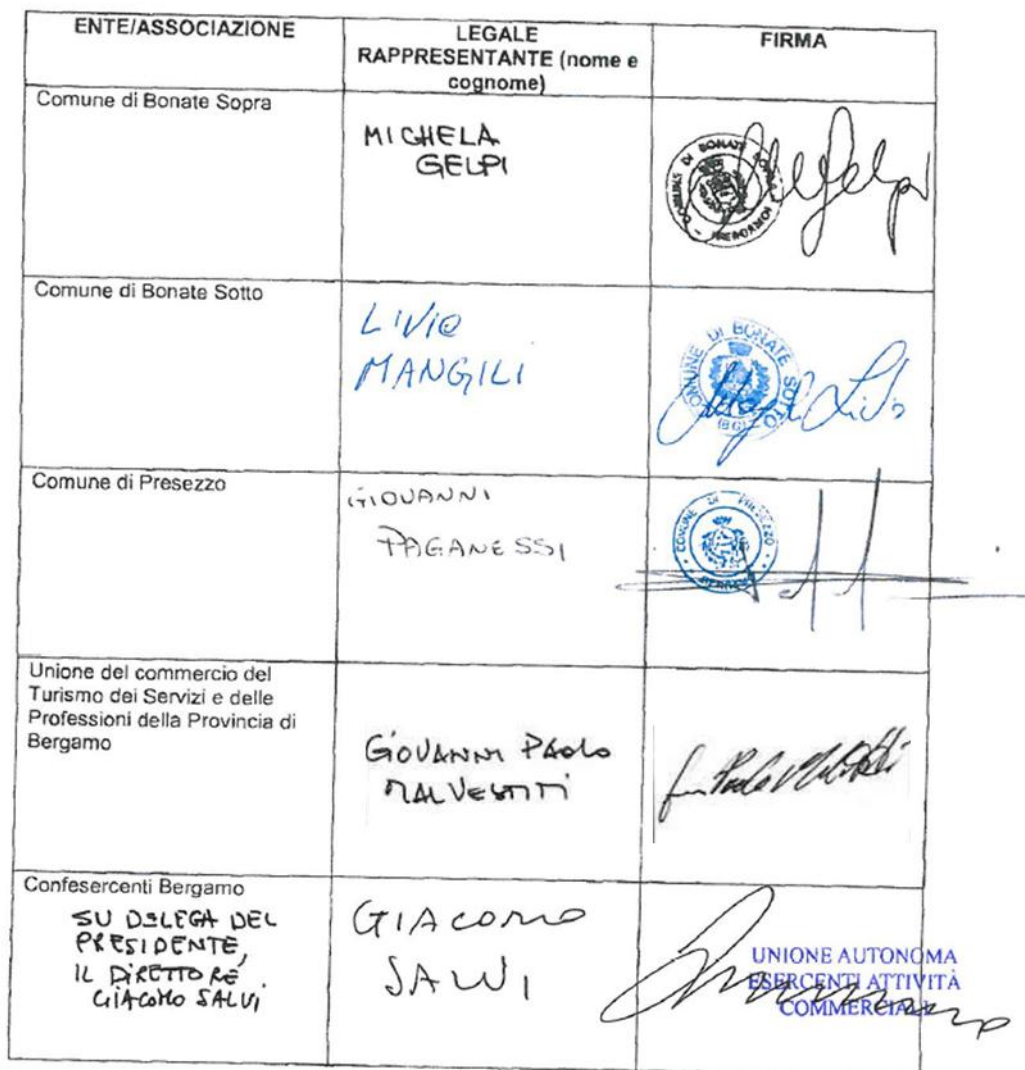 ENTE/ASSOCIAZIONE
LEGALE
RAPPRESENTANTE (nome e
cognome)
FIRMA
Comune di Bonate Sopra
MICHELA
GELPI
COMUNE DI BONATE SOPRA
(BERGAMO)
Comune di Bonate Sotto
LIVIO
MANGILI
COMUNE DI BONATE SOTTO
(BG)
Comune di Presezzo
GIOVANNI
PAGANESSI
COMUNE DI PRESEZZO
BERGAMO
Unione del commercio del
Turismo dei Servizi e delle
Professioni della Provincia di
Bergamo
GIOVANNI PAOLO
MALVESTITI
Confesercenti Bergamo
SU DELEGA DEL
PRESIDENTE,
IL DIRETTORE
GIACOMO SALVI
GIACOMO
SALVI
UNIONE AUTONOMA
ESERCENTI ATTIVITÀ
COMMERCIALI